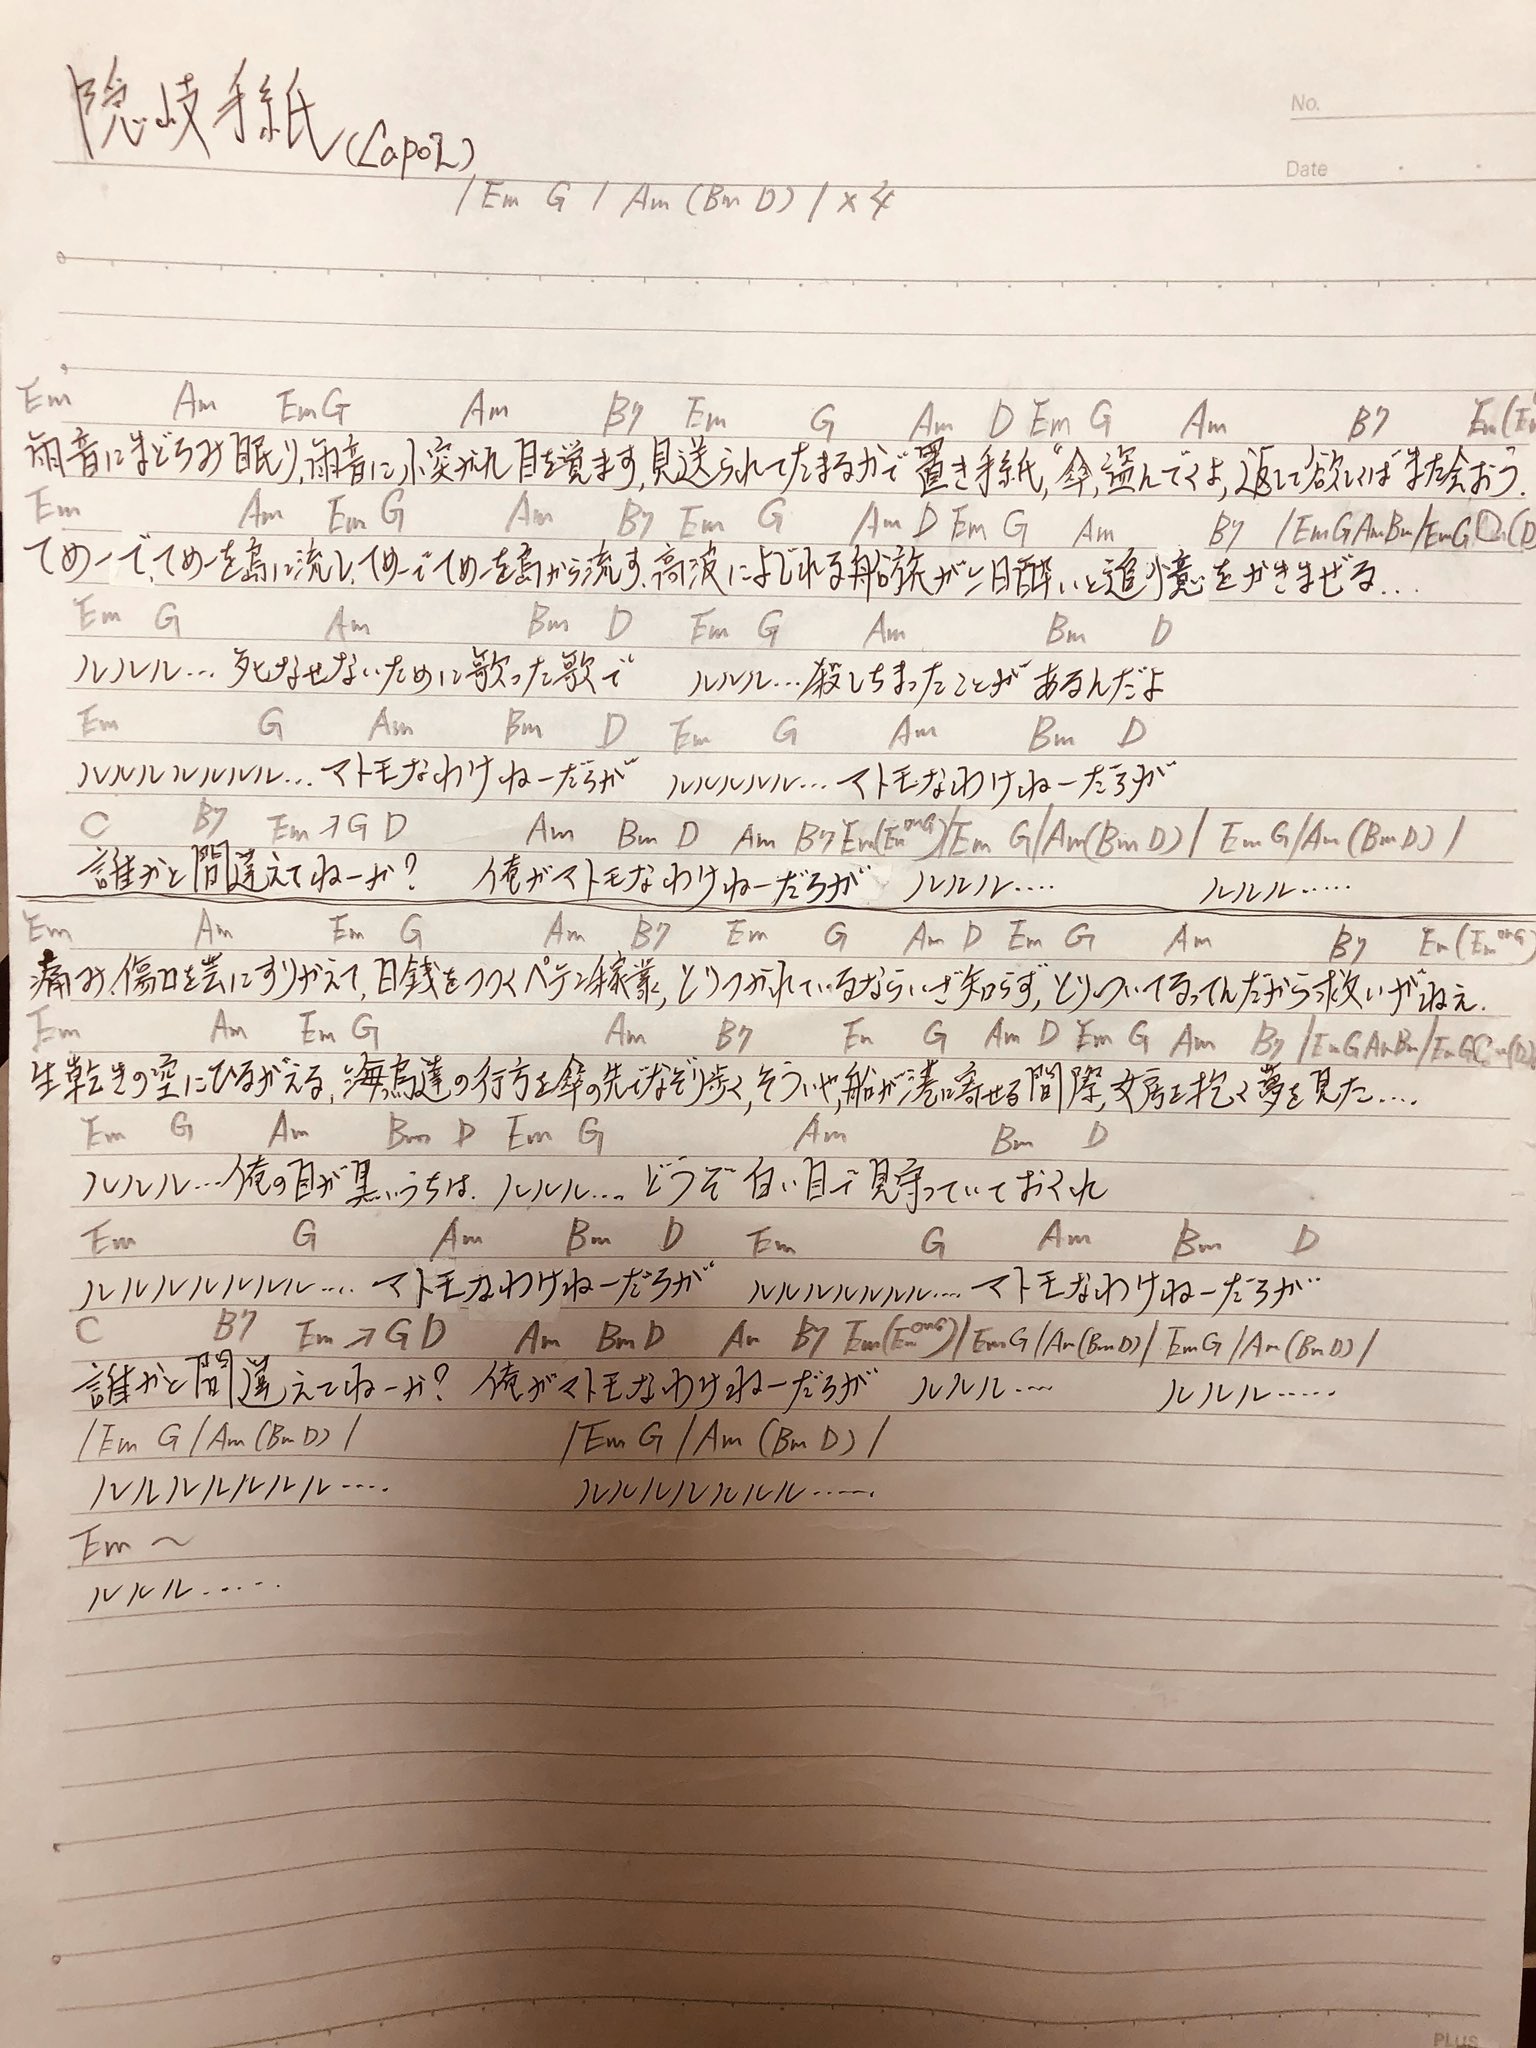 隠岐手紙(Capo2)
No.
Date
/ Em G / Am (Bm D) / ×4
Em Am Em G Am B7 Em G Am D Em G Am B7 Em(Em
雨音にまどろみ眠り,雨音に小突かれ目を覚ます,見送られてたまるかで置き手紙,“傘,盗んでくよ,返して欲しくばまた会おう.
Em Am Em G Am B7 Em G Am D Em G Am B7 /Em G Am Bm/Em G
てめーで,てめーを島に流し,てめーでてめーを島から流す,高波によじれる船旅が二日酔いと追憶をかきまぜる...
Em G Am Bm D Em G Am Bm D
ルルル...死なせないために歌った歌で ルルル...殺しちまったことがあるんだよ
Em G Am Bm D Em G Am Bm D
ルルルルルルル...マトモなわけねーだろが ルルルルルル...マトモなわけねーだろが
C B7 Em→G D Am Bm D Am B7 Em(Em onG)/Em G/Am(Bm D)/ Em G/Am(Bm D)/
誰かと間違えてねーか? 俺がマトモなわけねーだろが ルルル.... ルルル.....
Em Am Em G Am B7 Em G Am D Em G Am B7 Em(Em onG)
痛み,傷口を芸にすりかえて,日銭をつつくペテン稼業,とりつかれているならいざ知らず,とりついてるってんだから救いがねえ.
Em Am Em G Am B7 Em G Am D Em G Am B7 /Em G Am Bm/Em G
生乾きの空にひるがえる,海鳥達の行方を傘の先でなぞり歩く,そういや,船が港に寄せる間際,女房を抱く夢を見た....
Em G Am Bm D Em G Am Bm D
ルルル...俺の目が黒いうちは. ルルル.... どうぞ白い目で見守っていておくれ
Em G Am Bm D Em G Am Bm D
ルルルルルルル.... マトモなわけねーだろが ルルルルルルル....マトモなわけねーだろが
C B7 Em→G D Am Bm D Am B7 Em(Em onG)/Em G/Am(Bm D)/ Em G/Am(Bm D)/
誰かと間違えてねーか? 俺がマトモなわけねーだろが ルルル.... ルルル.....
/Em G/Am(Bm D)/ /Em G/Am(Bm D)/
ルルルルルルル.... ルルルルルルル.....
Em ~
ルルル.....
PLUS